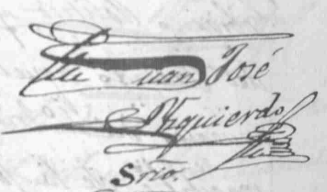 Juan José
Yzquierdo
Srio.